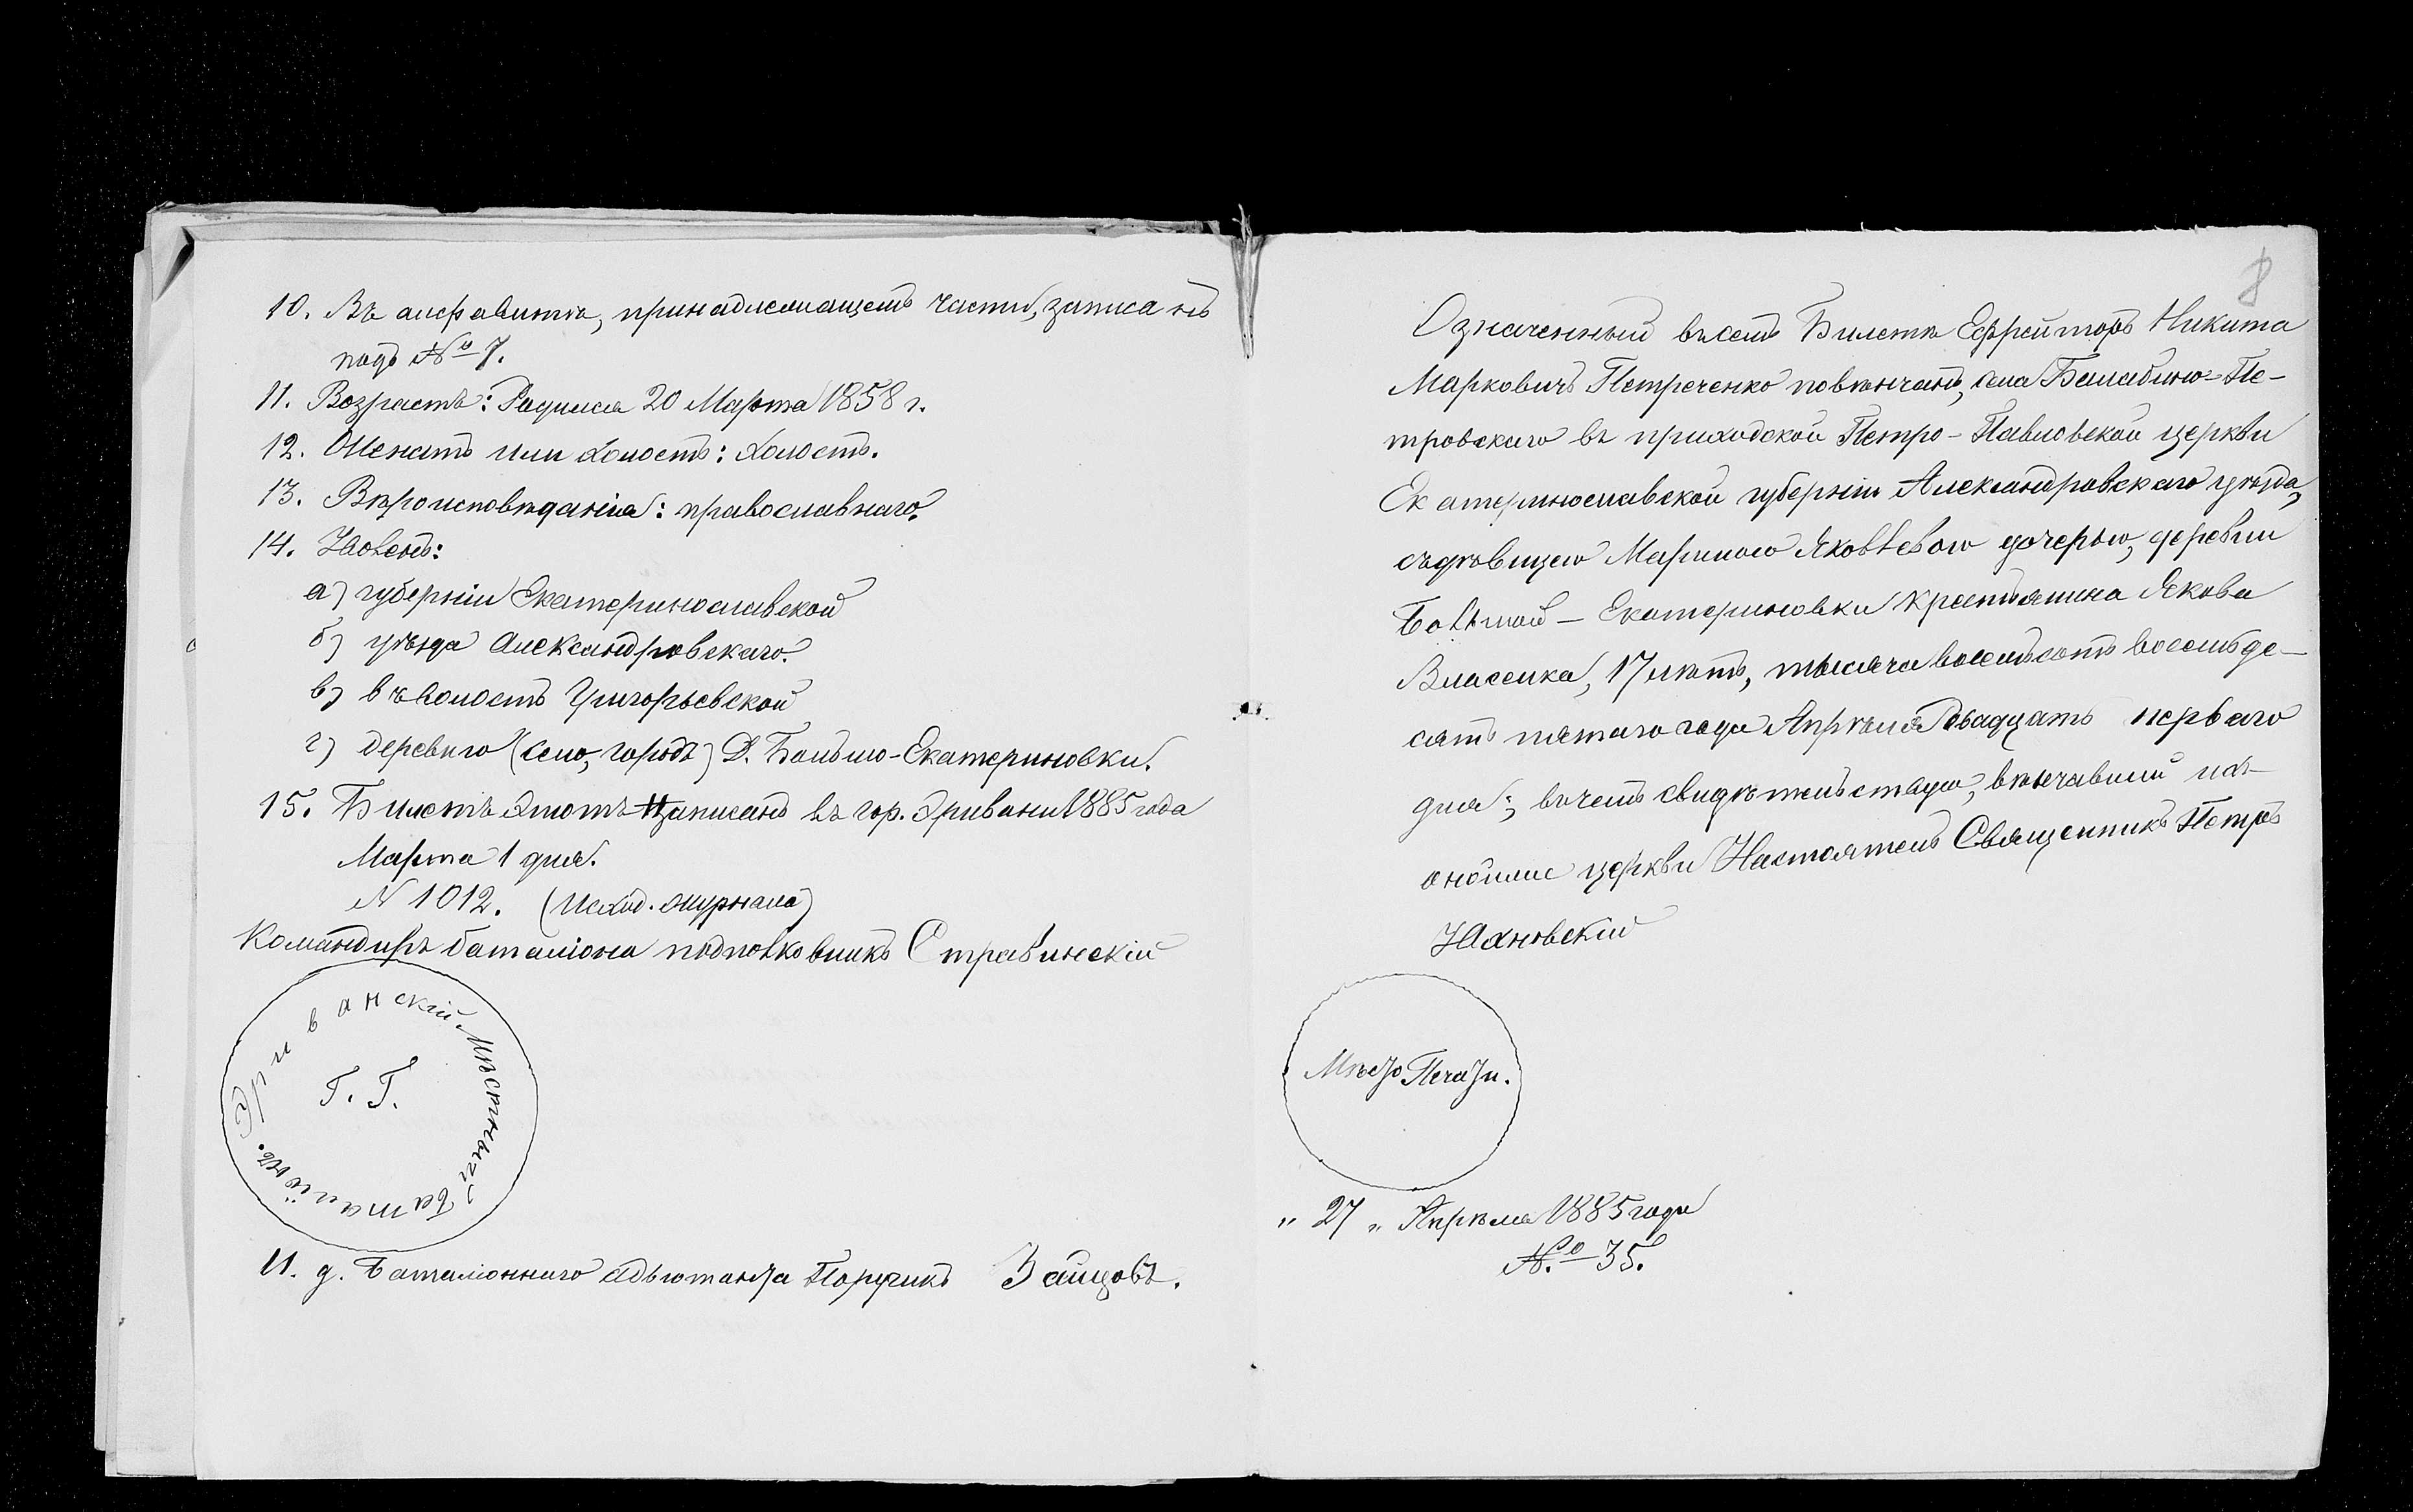 10. Въ алфавитѣ, принадлежащемъ части, записанъ
подъ № 7.
11. Возрастъ: Родился 20 Марта 1858 г.
12. Женатъ или холостъ: Холостъ.
13. Вѣроисповѣданія: православнаго.
14. Уволенъ:
а) губерніи Екатеринославской
б) уѣзда Александровскаго.
в) въ волость Григорьевской
г) деревню (село, городъ) Д. Больше-Екатериновки.
15. Билетъ этотъ записанъ въ гор. Эривани 1885 года
Марта 1 дня.
N 1012. (Исход. журнала)
Командиръ баталіона подполковникъ Стравинскій
Эриванскій Мѣстный Баталіонъ.
Г. Г.
И. д. Баталіоннаго Адъютанта Поручикъ Зайцовъ.
8
Означенный въ семъ Билетѣ Ефрейторъ Никита
Марковичъ Петреченко повѣнчанъ, села Балабино-Пе-
тровскаго въ приходской Петро-Павловской церкви
Екатеринославской губерніи Александровскаго уѣзда,
съ дѣвицею Мариною Яковлевою дочерью, деревни
Большой - Екатериновки крестьянина Якова
Власенка, 17 лѣтъ, тысяча восемьсотъ восемьде-
сятъ пятаго года Апрѣля двадцать перваго
дня; въ чемъ свидѣтельствую, вѣнчавшій на-
оной церкви Настоятель Священникъ Петръ
Яхновскій
Мѣсто Печати.
„ 27 „ Апрѣля 1885 года
№ 35.